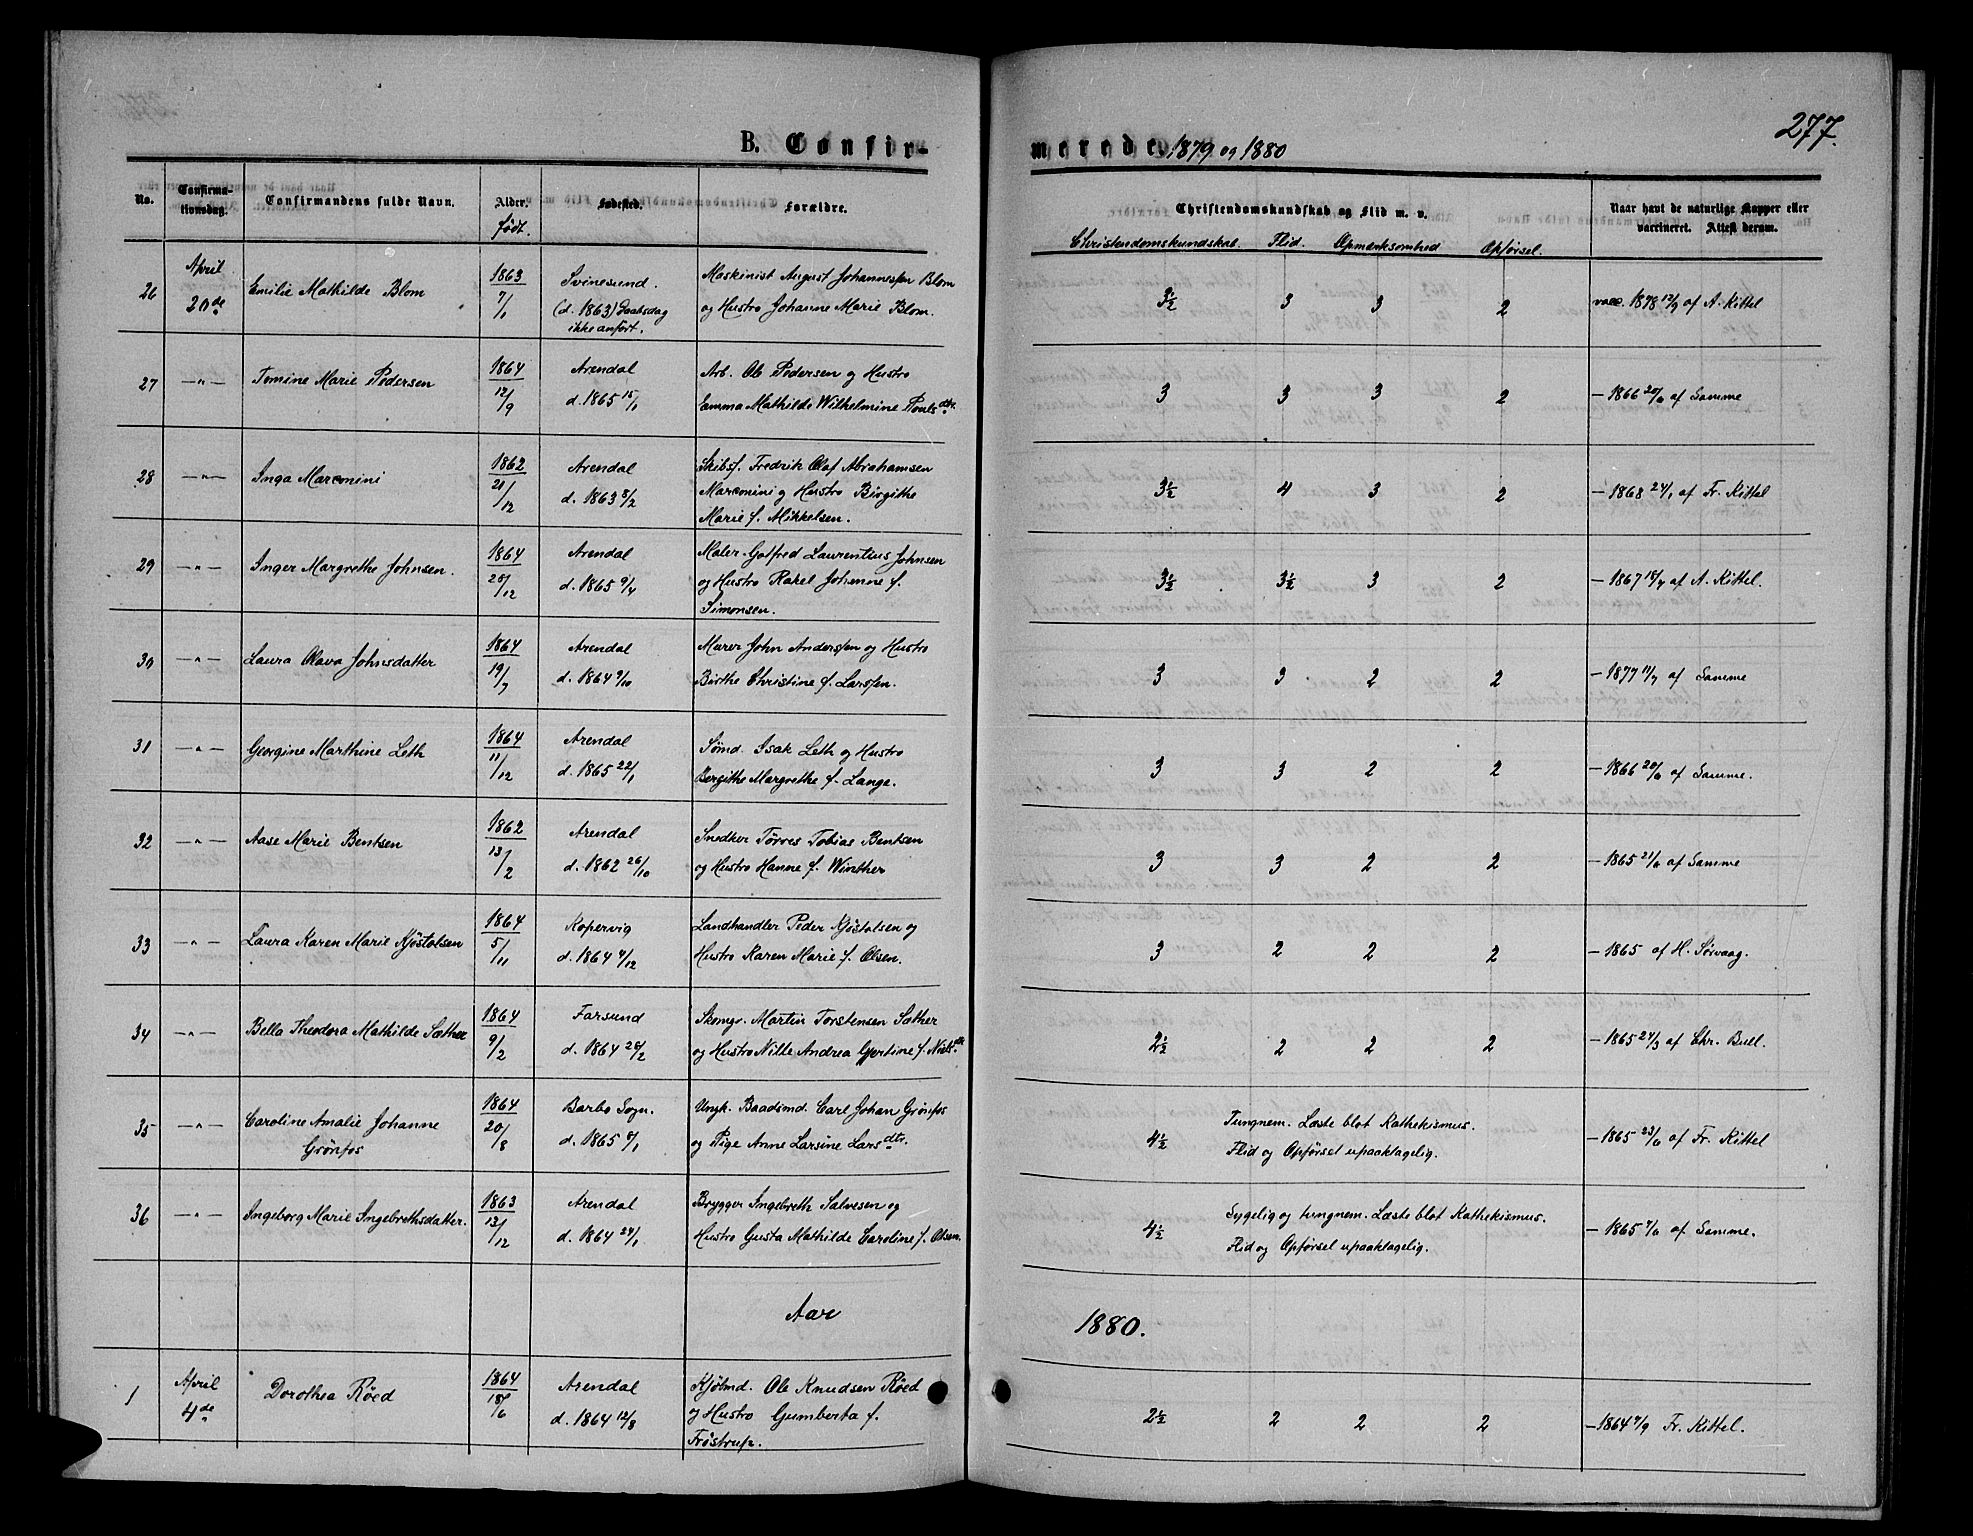 277.
B. Confirmerede 1879 og 1880
No. Confirmationsdag. Confirmandens fulde Navn. Alder. født. Fødested. Forældre. Christendomskundskab og Flid m. v. Naar havt de naturlige Kopper eller vaccineret. Attest derom.
Christendomskundskab. Flid. Opmærksomhed Opførsel.
26 April 20de Emilie Mathilde Blom 1863 7/1 Svinesund. (d. 1863) Daabsdag ikke anført. Maskinist August Johannesen Blom og Hustro Johanne Marie Blom. 3½ 3 3 2 vacc. 1878 12/9 af A. Kittel
27 —"— Tomine Marie Pedersen 1864 12/9 Arendal d. 1865 15/1 Arb. Ole Pedersen og Hustro Emma Mathilde Wilhelmine Pouls dtr. 3 3 3 2 — 1866 20/6 af Samme
28 —"— Inga Marcmini 1862 21/12 Arendal d. 1863 8/2 Skibsf. Fredrik Olaf Abrahamsen Marcmini og Hustro Birgithe Marie f. Mikkelsen. 3½ 4 3 2 — 1868 24/1 af Fr. Kittel
29 —"— Inger Margrethe Johnsen. 1864 28/12 Arendal d. 1865 9/4 Maler Gotfred Laurentius Johnsen og Hustro Rakel Johanne f. Simonsen. 3½ 3½ 3 2 — 1867 18/7 af A. Kittel.
30 —"— Laura Olava Johnsdatter 1864 19/7 Arendal d. 1864 9/10 Murer John Anderssen og Hustro Birthe Christine f. Larssen. 3 3 2 2 — 1877 17/7 af Samme
31 —"— Georgine Marthine Leth 1864 11/12 Arendal d. 1865 22/1 Sømd. Isak Leth og Hustro Bergithe Margrethe f. Lange. 3 3 2 2 — 1866 20/6 af Samme.
32 —"— Aase Marie Bentsen 1862 13/2 Arendal d. 1862 26/10 Snedker Tørres Tobias Bentsen og Hustro Hanne f. Winther 3 3 2 2 — 1865 21/6 af Samme
33 —"— Laura Karen Marie Kjøstolsen 1864 5/11 Kopervig d. 1864 4/12 Landhandler Peder Kjøstolsen og Hustro Karen Marie f. Olsen. 3 2 2 2 — 1865 af H. Sørvaag.
34 —"— Bella Theodora Mathilde Sæther 1864 9/2 Farsund d. 1864 28/2 Skomgr. Martin Torstensen Sæther og Hustro Nille Andrea Gjertine f. Niels dtr 2½ 2 2 2 — 1865 24/3 af Chr. Bull.
35 —"— Caroline Amalie Johanne Grønfos 1864 20/8 Barbo Sogn. d. 1865 8/1 Ungk. Baadsmd. Carl Johan Grønfos og Pige Anne Larsine Lars dtr. 4½ Tungnem. Læste blot Kathekismus. Flid og Opførsel upaaklagelig. — 1865 23/6 af Fr. Kittel
36 —"— Ingeborg Marie Ingebrethsdatter. 1863 13/12 Arendal d. 1864 24/1 Brygger Ingebreth Salvesen og Hustro Gusta Mathilde Caroline f. Olsen. 4½ Sygelig og tungnem. Læste blot Kathekismus. Flid og Opførsel upaaklagelig. — 1865 7/6 af Samme.
Aar 1880.
1 April 4de Dorothea Røed 1864 18/6 Arendal d. 1864 12/8 Kjølmd. Ole Knudsen Røed og Hustro Gumberta f. Frøstrup. 2½ 2 2 2 — 1864 7/9 Fr. Kittel.